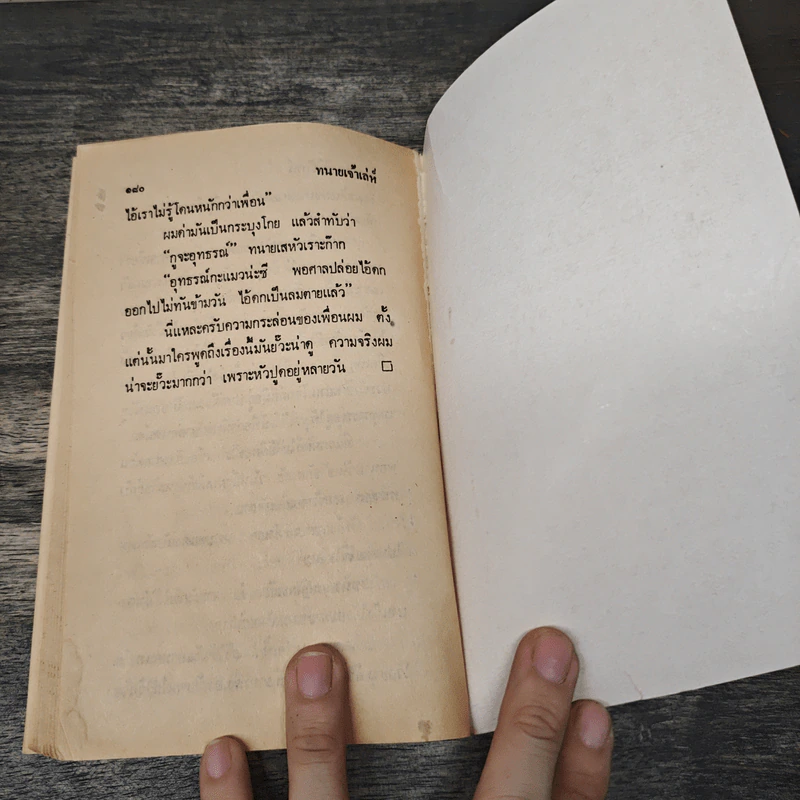 ๑๘๐
ทนายเจ้าเล่ห์
ไอ้เราไม่รู้โดนหนักกว่าเพื่อน”
ผมด่ามันเป็นกระบุงโกย แล้วสำทับว่า
“กูจะอุทธรณ์” ทนายเสหัวเราะก๊าก
“อุทธรณ์กะแมวน่ะซี พอศาลปล่อยไอ้ดก
ออกไปไม่ทันข้ามวัน ไอ้ดกเป็นลมตายแล้ว”
นี่แหละครับความกระล่อนของเพื่อนผม ตั้ง
แต่นั้นมาใครพูดถึงเรื่องนี้มันยั๊วะน่าดู ความจริงผม
น่าจะยั๊วะมากกว่า เพราะหัวปูดอยู่หลายวัน